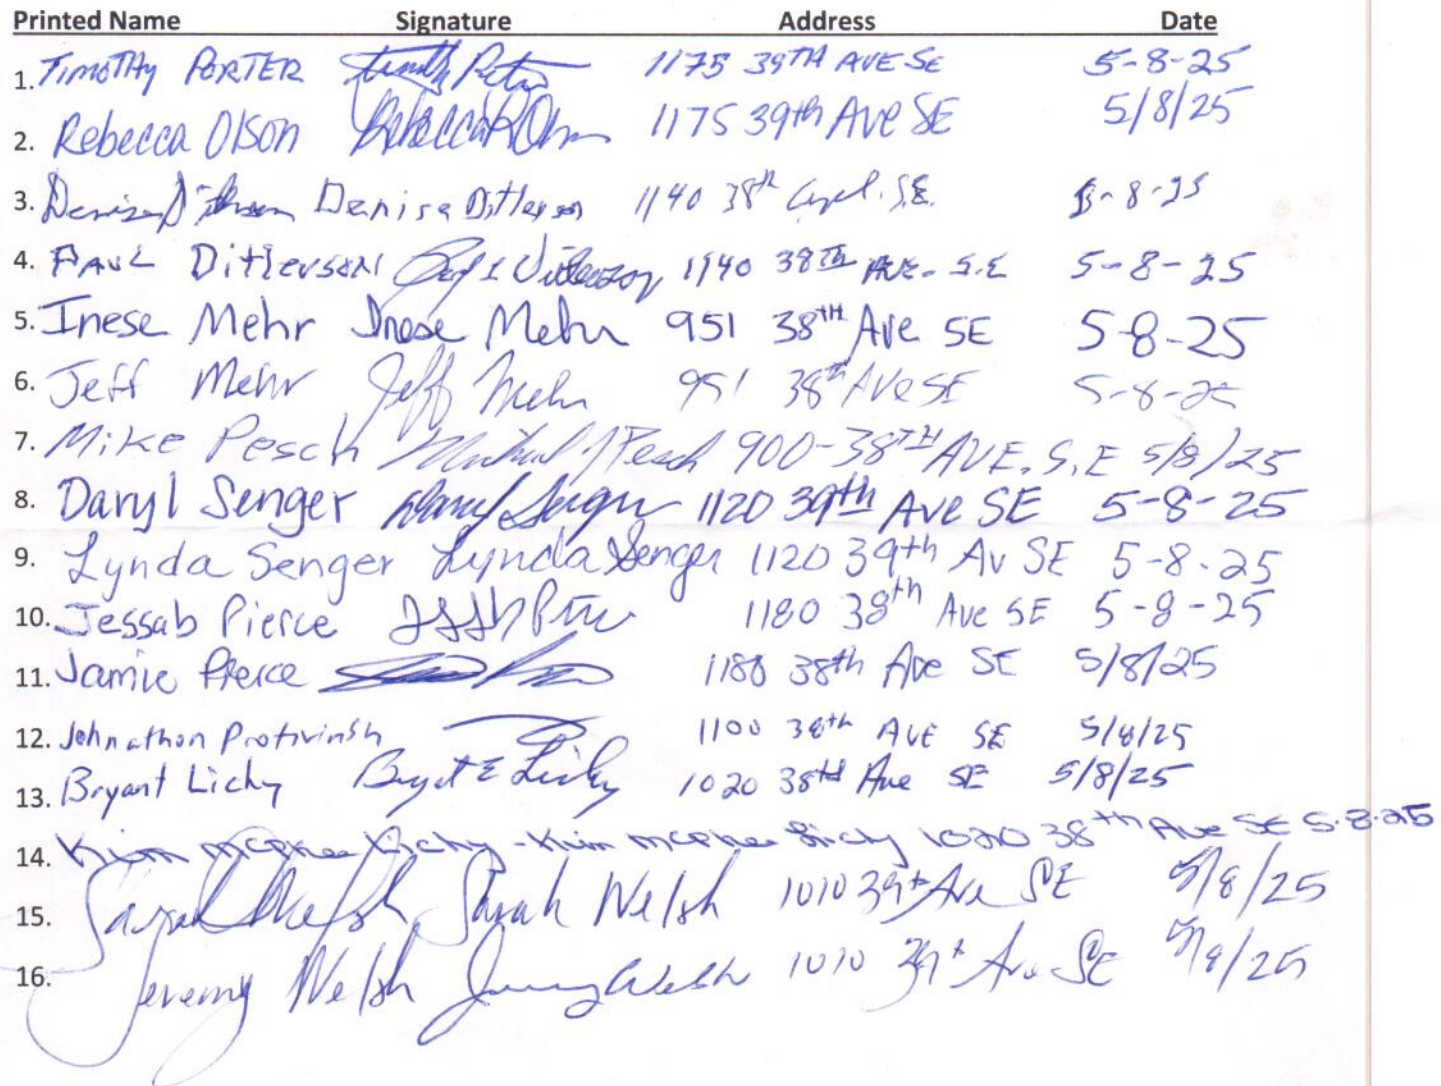 Printed Name Signature Address Date
1. Timothy PORTER Timothy Porter 1175 39TH AVE SE 5-8-25
2. Rebecca Olson Rebecca R Olson 1175 39th Ave SE 5/8/25
3. Denise Ditlevson Denise Ditlevson 1140 38th S.E. 5-8-25
4. PAUL Ditlevson Ditlevson 1140 38TH AVE. S.E 5-8-25
5. Inese Mehr Inese Mehr 951 38TH Ave SE 5-8-25
6. Jeff Mehr Jeff Mehr 951 38th Ave SE 5-8-25
7. Mike Pesch Michael J Pesch 900-38TH AVE. S.E 5/8/25
8. Daryl Senger Daryl Senger 1120 39th Ave SE 5-8-25
9. Lynda Senger Lynda Senger 1120 39th Av SE 5-8-25
10. Jessab Pierce 1180 38th Ave SE 5-8-25
11. Jamie Pierce 1180 38th Ave SE 5/8/25
12. Johnathon Protivinsh 1100 38th AVE SE 5/8/25
13. Bryant Lichy Bryant E Lichy 1020 38th Ave SE 5/8/25
14. Kim McPhee Lichy - Kim McPhee Lichy 1020 38th Ave SE 5-8-25
15. Sarah Welsh Sarah Welsh 1010 39th Ave SE 5/8/25
16. Jeremy Welsh Jeremy Welsh 1010 39th Ave SE 5/8/25